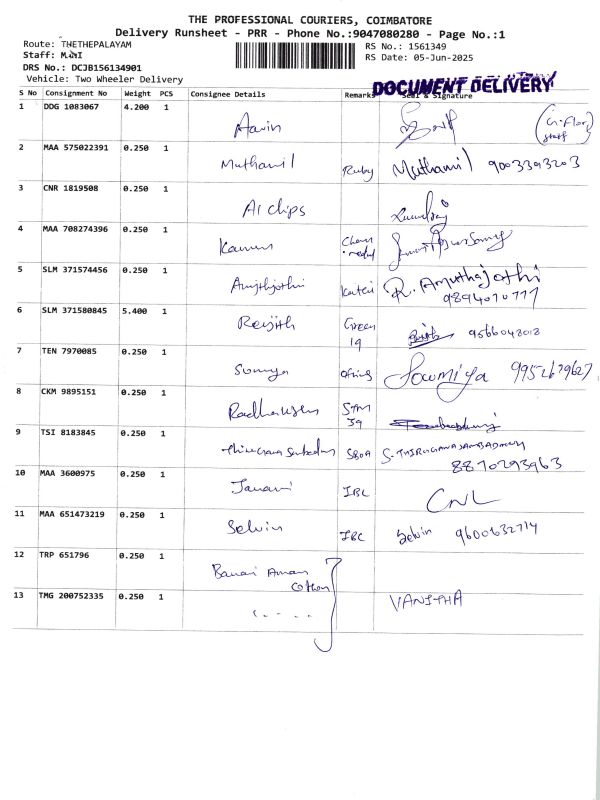 THE PROFESSIONAL COURIERS, COIMBATORE
Delivery Runsheet - PRR - Phone No.:9047080280 - Page No.:1
Route: THETHEPALAYAM
RS No.: 1561349
Staff: M.
RS Date: 05-Jun-2025
DRS No.: DCJB156134901
Vehicle: Two Wheeler Delivery
DOCUMENT DELIVERY
S No Consignment No Weight PCS Consignee Details Remarks Seal & Signature
1 DDG 1083067 4.200 1 Aavin
2 MAA 575022391 0.250 1 Muthamil Ruby Muthamil 9003393203
3 CNR 1819508 0.250 1 AI clips
4 MAA 708274396 0.250 1
5 SLM 371574456 0.250 1 R. Amuthajothi
9894070777
6 SLM 371580845 5.400 1 Green 19 9566048018
7 TEN 7970085 0.250 1 Sowmya Sowmiya 9952679627
8 CKM 9895151 0.250 1 39
9 TSI 8183845 0.250 1 SBOA S. THIRUGNANASAMBADAM
8870293963
10 MAA 3600975 0.250 1 Janani IBC CNL
11 MAA 651473219 0.250 1 Selvin IBC Selvin 9600632714
12 TRP 651796 0.250 1 Banari Aman
Cotton
13 TMG 200752335 0.250 1 VANITHA